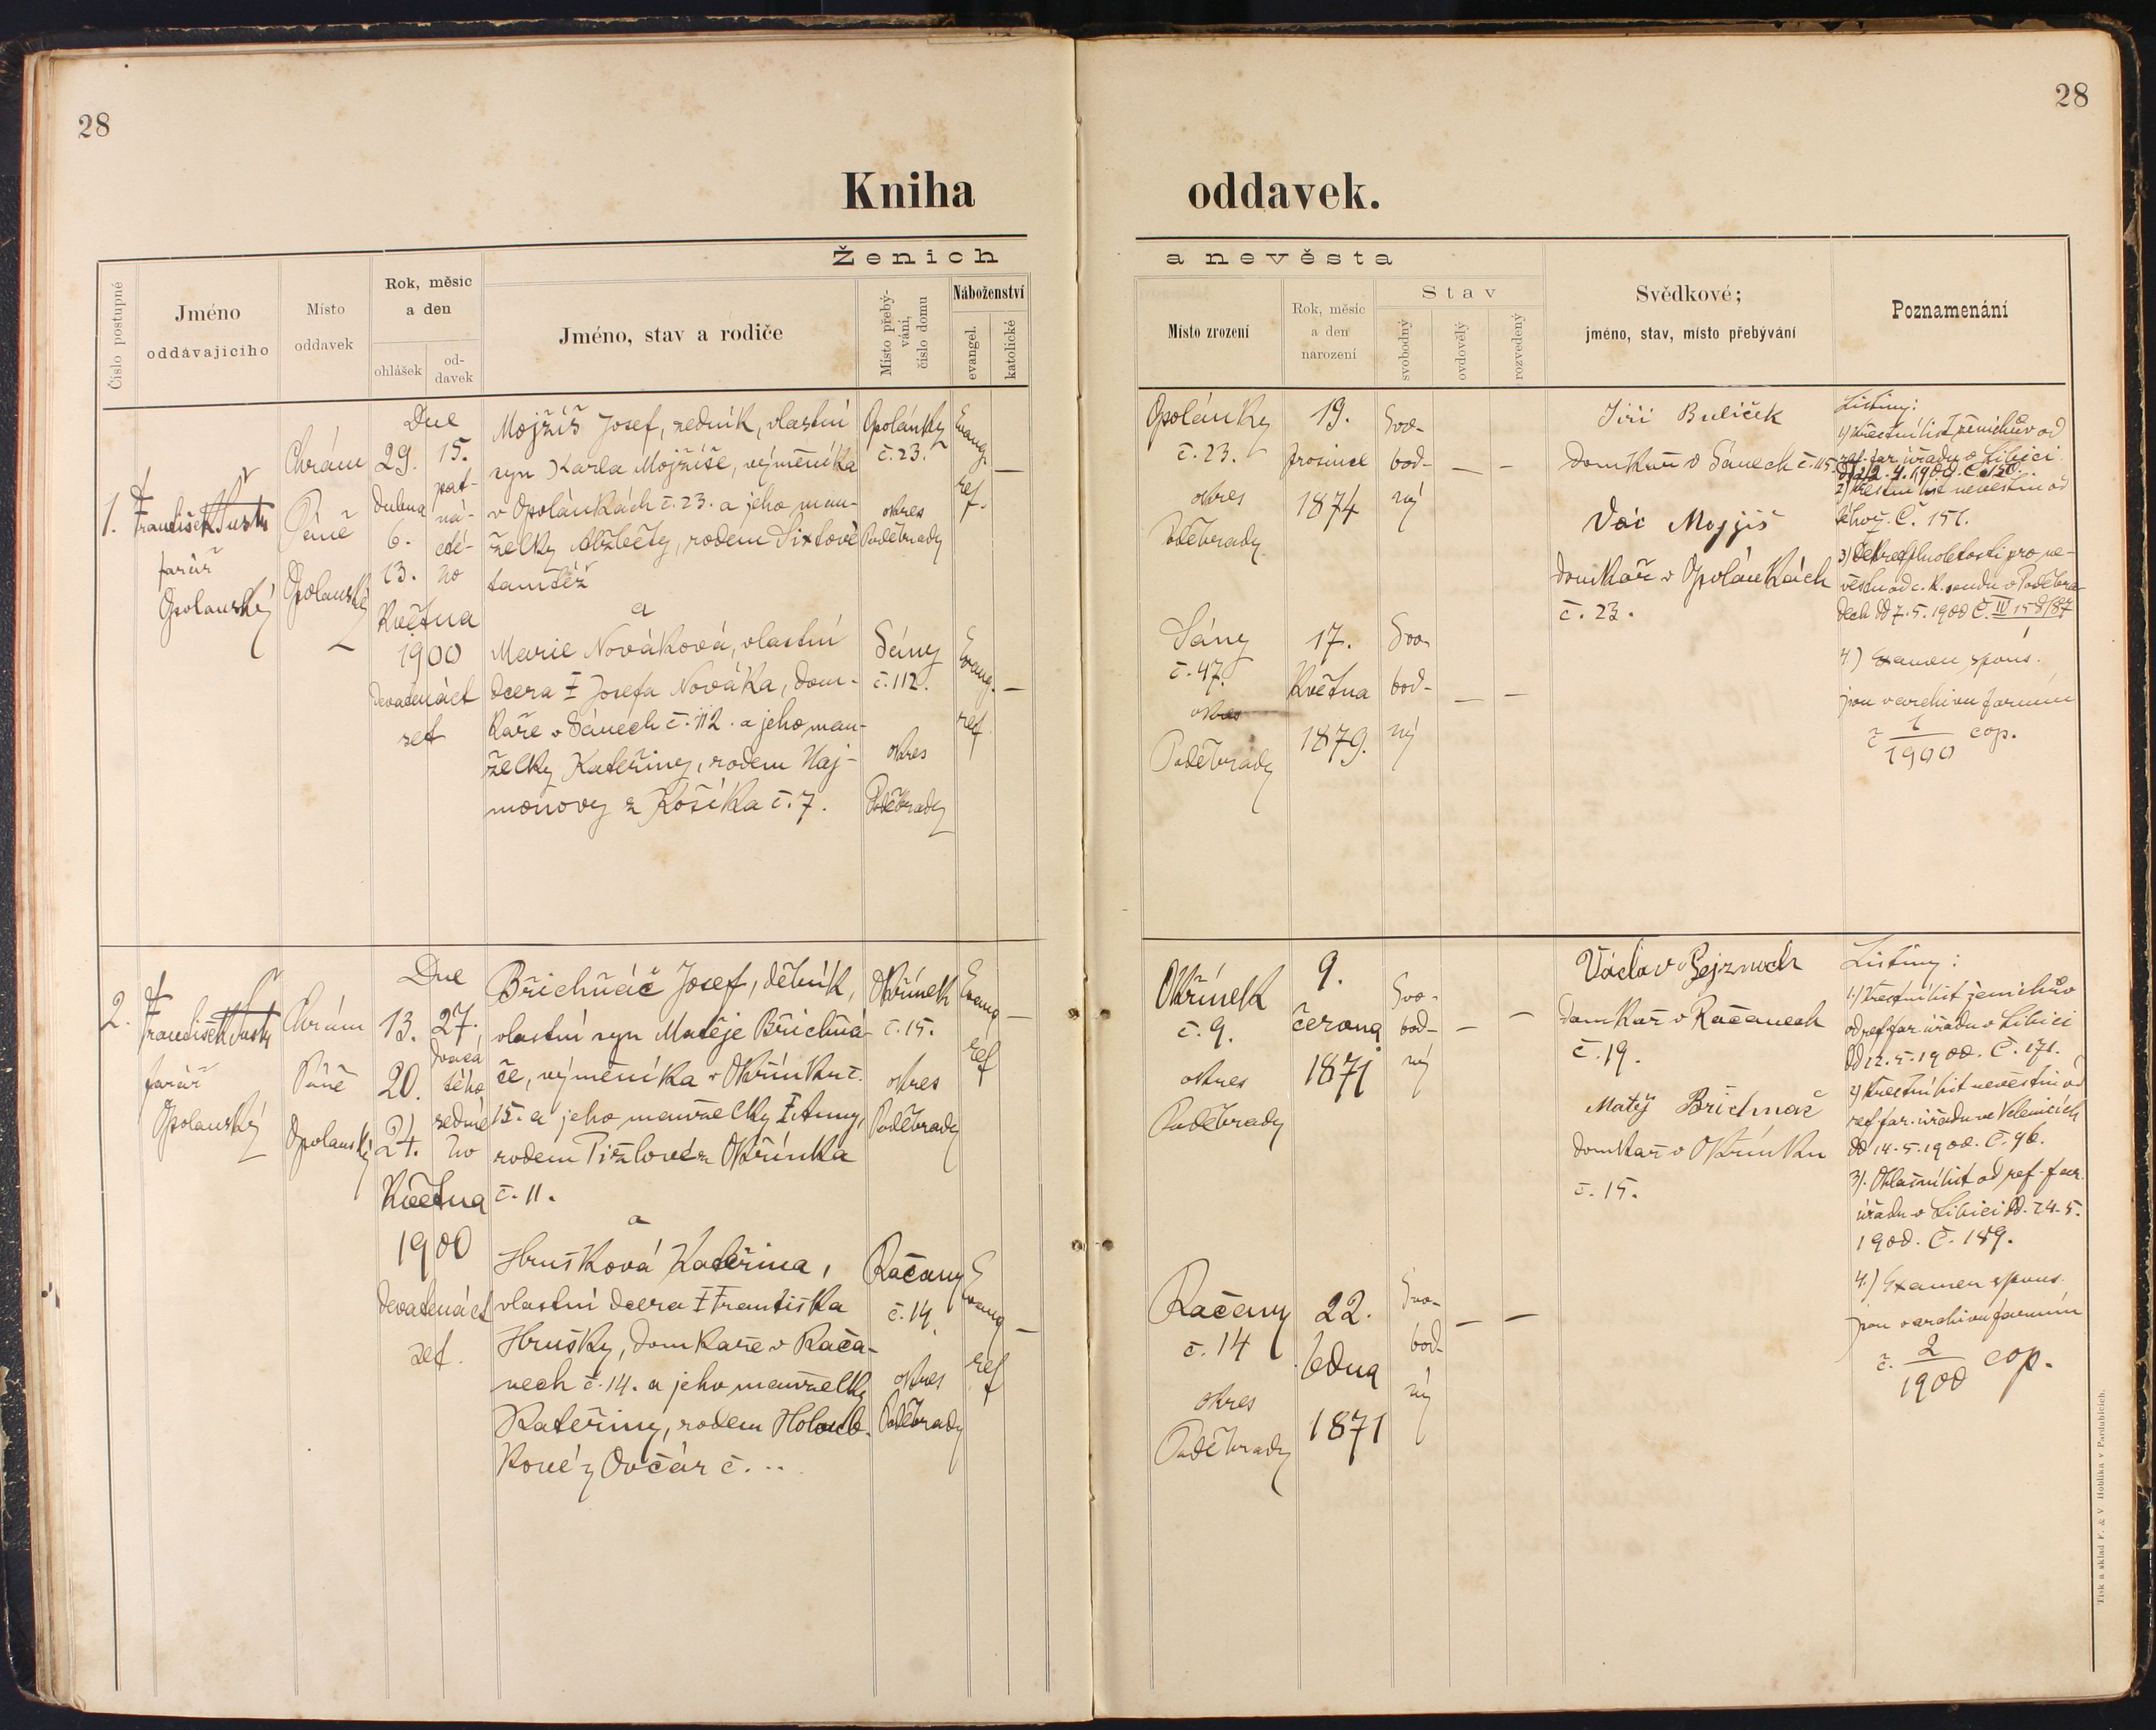 28
28
Kniha
oddavek.
Ženich
a nevěsta
Číslo postupné
Jméno
oddávajícího
Místo
oddavek
Rok, měsíc
a den
ohlášek
od-
davek
Jméno, stav a rodiče
Místo přebý-
vání,
číslo domu
Náboženství
evangel.
katolické
Místo zrození
Rok, měsíc
a den
narození
Stav
svobodný
ovdovělý
rozvedený
Svědkové;
jméno, stav, místo přebývání
Poznamenání
1.
František
farář
Opolanský
Chrám
Páně
Opolanský
Dne
29.
Dubna
6.
13.
Května
1900
Devatenáct
set
15.
pat-
ná-
cté-
ho
Mojžíš Josef, zedník, vlastní
syn Karla Mojžíše, výměníka
v Opolánkách č. 23. a jeho man-
želky Alžběty, rodem Sixtové
tamtéž
a
Marie Nováková, vlastní
dcera † Josefa Nováka, dom-
káře v Sánech č. 112. a jeho man-
želky Kateřiny, rodem Haj-
monovy z Košíka č. 7.
Opolánky
č. 23.
okres
Poděbrady
Sány
č. 112.
okres
Poděbrady
Evang.
ref.
—
Evang.
ref.
—
Opolánky
č. 23.
okres
Poděbrady
19.
prosince
1874
Svo-
bod-
ný
— —
Sány
č. 47.
okres
Poděbrady
17.
Května
1879.
Svo-
bod-
ný
— —
Jiří Bulíček
domkář v Sánech č. 115.
Vác Mojžíš
domkář v Opolánkách
č. 23.
Listiny:
1) Křestní list ženichův od
ref. far. úřadu v Libici
4. 1900. Č. 150.
2) Křestní list nevěstin od
téhož. Č. 151.
3) Dekret plnoletosti pro ne-
věstu od c. k. soudu v Poděbra-
dech dd 7. 5. 1900 Č. IV 158/87
4.) Examen spons.
jsou v archivu farním
č 1/1900 cop.
2.
František
farář
Opolanský
Chrám
Páně
Opolanský
Dne
13.
20.
24.
Května
1900
Devatenáct
set.
27.
dvacá
tého
sedmé
ho
Břichňáč Josef, dělník,
vlastní syn Matěje Břichňá-
če, výměníka v Okřínku č.
15. a jeho manželky † Anny,
rodem Pižlové z Okřínka
č. 11.
a
Hrušková Kateřina,
vlastní dcera † Františka
Hrušky, domkáře v Rača-
nech č. 14. a jeho manželky
Kateřiny, rodem Holoub-
kové z Ovčár č. ...
Okřínek
č. 15.
okres
Poděbrady
Račany
č. 14.
okres
Poděbrady
Evang
ref
—
Evang
ref
—
Okřínek
č. 9.
okres
Poděbrady
9.
června
1871
Svo-
bod-
ný
— —
Račany
č. 14
okres
Poděbrady
22.
ledna
1871
Svo-
bod-
ný
— —
Václav Pejznoch
domkař v Račanech
č. 19.
Matěj Břichnáč
domkař v Okřínku
č. 15.
Listiny:
1) Křestní list ženichův
od ref. far. úřadu v Libici
dd 12. 5. 1900. Č. 171.
2) Křestní list nevěstin od
ref. far. úřadu ve Velenicích
dd 14. 5. 1900. Č. 96.
3). Ohlašní list od ref. far.
úřadu v Libici dd. 24. 5.
1900. Č. 189.
4.) Examen spons.
jsou v archivu farním
č. 2/1900 cop.
Tisk a sklad F. & V. Hoblíka v Pardubicích.